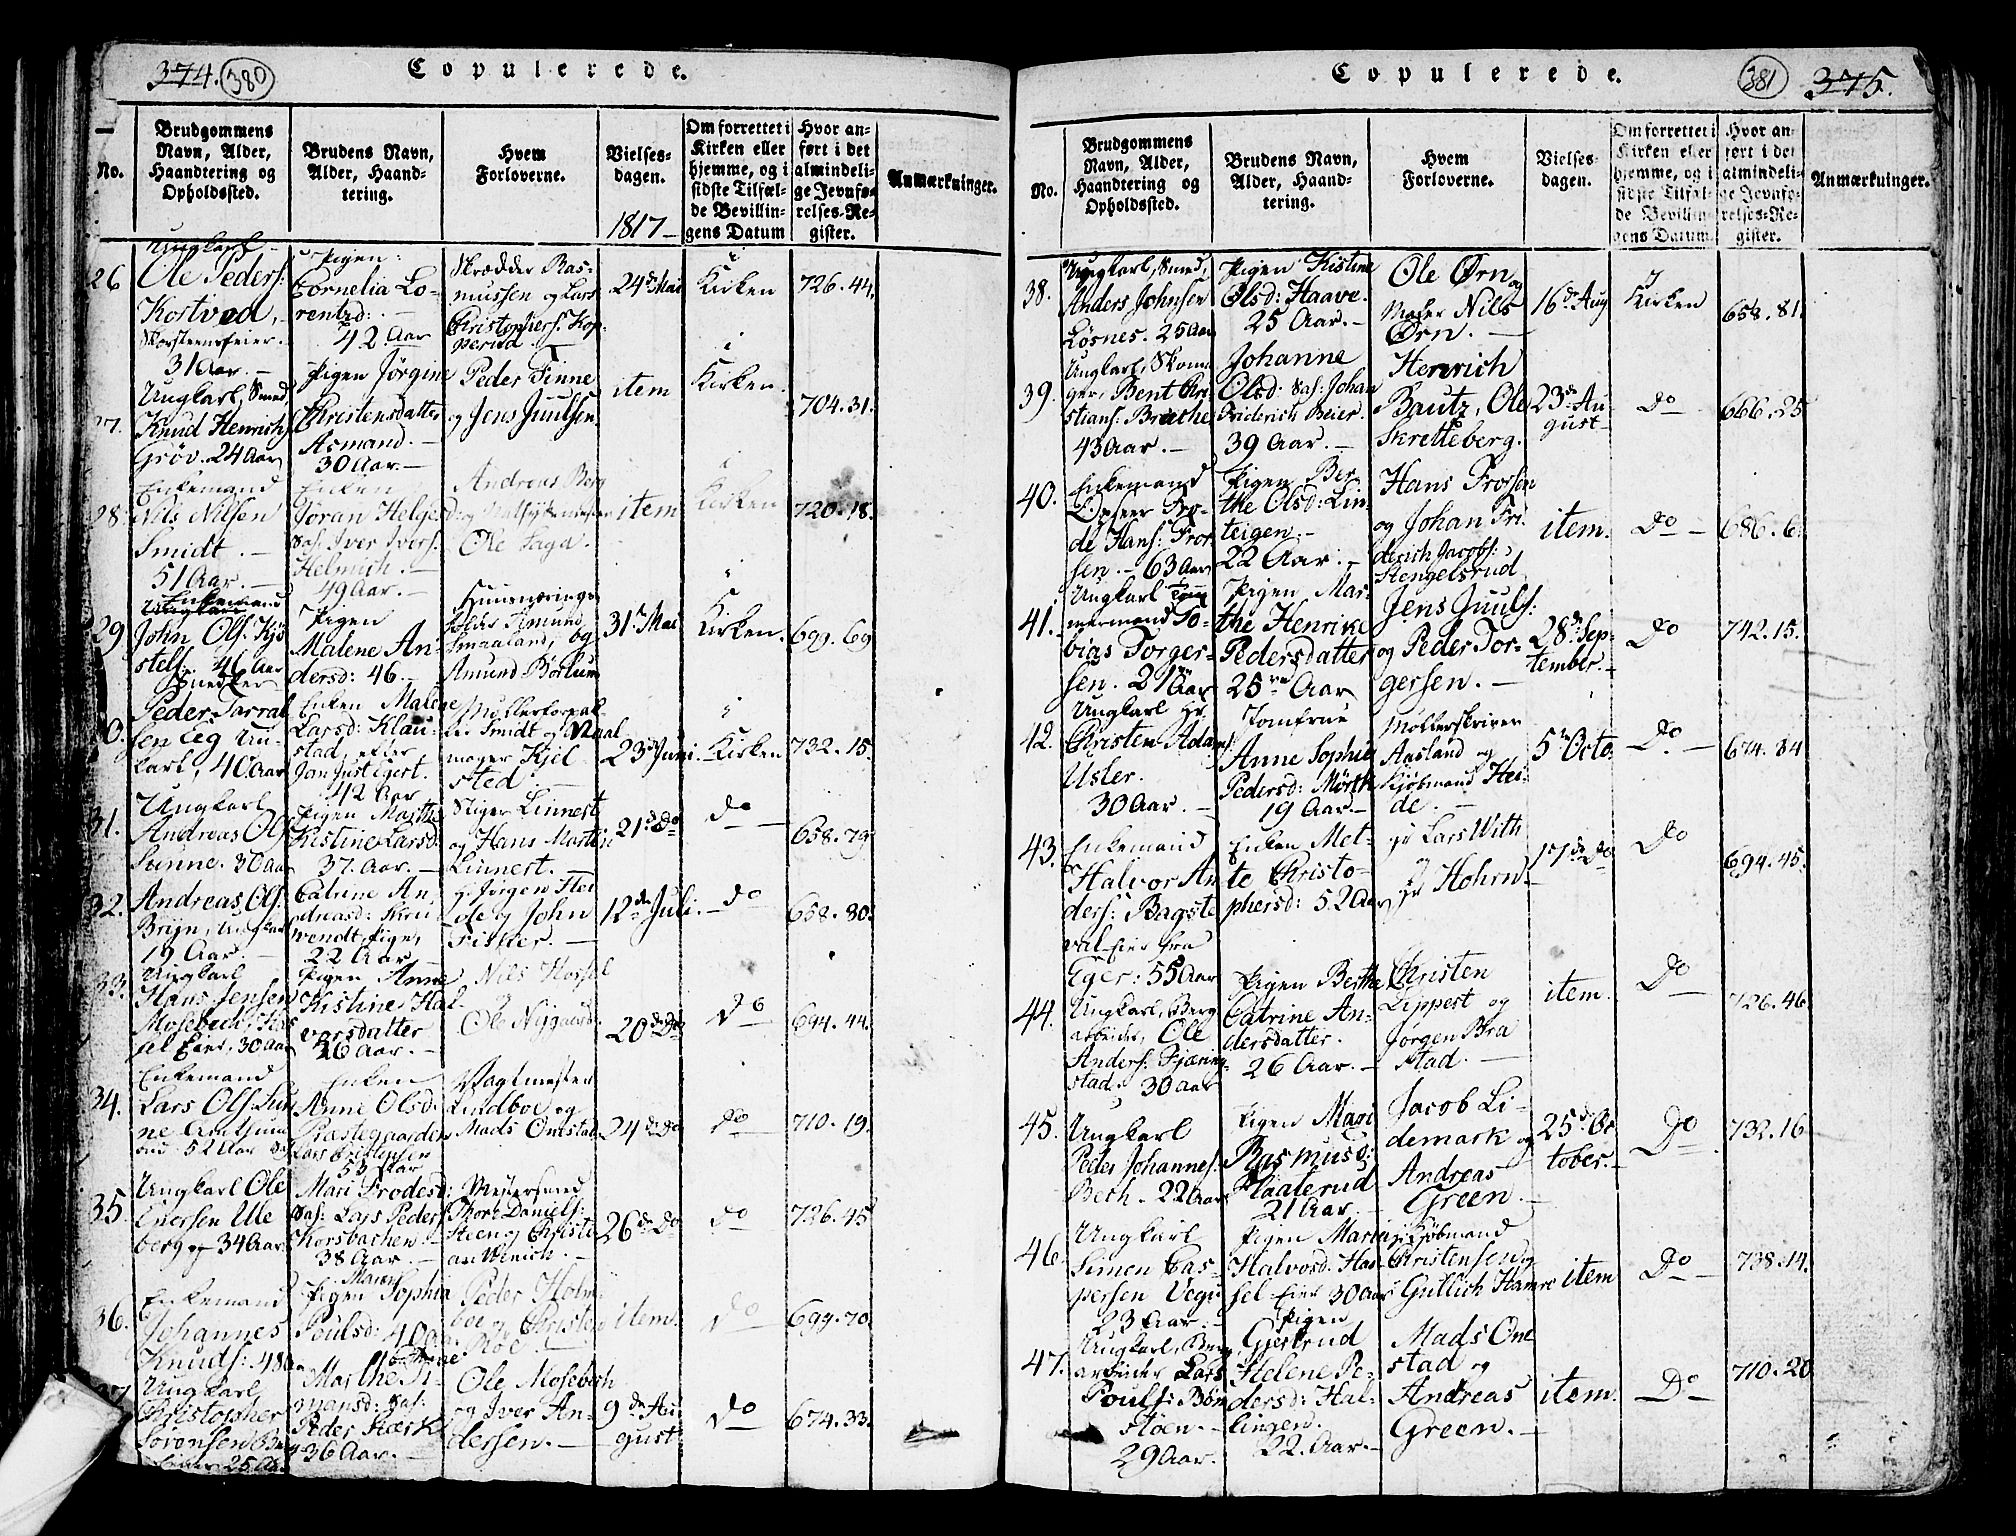 374. 380
Copulerede.
No.
Brudgommens
Navn, Alder,
Haandtering og
Opholdssted.
Brudens Navn,
Alder, Haand-
tering.
Hvem
Forloverne.
Vielses-
dagen.
1817
Om forrettet i
Kirken eller
hjemme, og i
sidste Tilfæl-
de Bevillin-
gens Datum
Hvor an-
ført i det
almindeli-
ge Jevnfø-
relses-Re-
gister.
Anmærkninger.
26
Ungkarl
Ole Peders:
Kortved,
Skorsteensfeier.
31 Aar.
Pigen:
Cornelia Lo-
rentzd:
42 Aar
Skrædder Ras-
mussen og Lars
Christophers: Kop-
perud
24de Mai
i
Kirken
726.44.
27.
Ungkarl, Smed,
Knud Henrichs:
Grøv. 24 Aar
Pigen Jørgine
Christensdatter
Asmand.
30 Aar.
Peder Finne
og Jens Juulsen
item
i
Kirken.
704.31.
28.
Enkemand
Nils Nilsen
Smidt.
51 Aar.
Enken
Joran Helgesd:
Sal: Iver Ivers:
Helmich.
49 Aar.
Andreas Berg
og
Ole Saga.
item
i
Kirken
720.18.
29
Enkemand
Ungkarl
John Ols: Kjø-
stels: 46 Aar
Snedker
Pigen
Malene An-
dersd: 46.
Huusnærings-
Smaaland, og
Amund Börlum
31te Mai
i
Kirken.
699.69
30.
Peder Tarral-
sen Eeg Un-
karl, 40 Aar
Enken Malene
Larsd: Klau-
stad efter
Jan Just Egert.
42 Aar
Smidt og
mager Kjel-
sted
23de Juni.
i
Kirken
732.15.
31.
Ungkarl
Andreas Ols:
Sunne. 30 Aar
Pigen Marthe
Kistine Larsd:
37. Aar.
Stiger Linnert
og Hans Martin
Linnert.
21de do
do
658.79.
32.
Andreas Ols:
Bryn, Ungkarl
19 Aar.
Catrine An-
dreasd: Skru-
vendt, Pige,
22 Aar
H: Jørgen Hei-
de og John
Fisker.
12de Juli.
do
658.80.
33.
Ungkarl
Hans Jensen
Mosebech, Has-
sel Eier. 30 Aar
Pigen Anne
Kistine Hal-
vorsdatter
26 Aar.
Nils Horsel
og
Ole Nyegaard.
20de do
do
694.44.
34.
Enkemand
Lars Ols: Sun-
ne
52 Aar
Enken
Anne Olsd:
Præstegaarden
Lars Christensen
53 Aar
Vagtmester
Lindboe og
Mads Onestad
24de do
do
710.19.
35
Ungkarl Ole
Enersen Ule-
berg 34 Aar.
Mari Frodesd:
Sal: Lars Peders:
Korsbachen
38 Aar.
Mestersvend
Thore Daniels:
Steen og Christi-
an Weinich.
26de do
do
726.45
36.
Enkemand
Johannes
Knuds: 48 Aar
Maren
Pigen Sophia
Poulsd:
40 Aar
Peder Holm-
boe og Christen
Röe.
item.
do
699.70.
37
Ungkarl
Christopher
Sørensen
25 Aar
Marthe Si-
monsd: Sal:
Peder Skærk
36 Aar.
Ole Mosebech
og Iver An-
dersen.
9de Au-
gust
do
674.33.
Copulerede.
381 375.
No.
Brudgommens
Navn, Alder,
Haandtering og
Opholdssted.
Brudens Navn,
Alder, Haand-
tering.
Hvem
Forloverne.
Vielses-
dagen.
Om forrettet i
Kirken eller
hjemme, og i
sidste Tilfæl-
de Bevillin-
gens Datum.
Hvor an-
ført i det
almindeli-
ge Jevnfø-
relses-Re-
gister.
Anmærkninger.
38.
Ungkarl, Smed,
Anders Johnsen
Løsnes. 25 Aar
Pigen Kistine
Olsd: Haave.
25 Aar.
Ole Ørn og
Maler Nils
Ørn.
16de Aug
i
Kirken
658.81.
39.
Ungkarl, Skoma-
ger, Bent Chri-
stians: Brathe
43 Aar.
Johanne
Olsd: Sal: Johan
Friderich Beier.
39 Aar.
Henrich
Bautz, Ole
Skretteberg.
23de Au-
gust
do
666.25
40.
Enkemand
Opseer Fro-
de Hans: Fros-
sen. 63 Aar
Pigen Ber-
the Olsd: Lin-
teigen.
22 Aar.
Hans Frossen
og Johan Fri-
derich Jacobs:
Stengelsrud
item.
do
686.6
41.
Ungkarl Töm-
mermand To-
bias Torger-
sen. 21 Aar
Pigen Mar-
the Henrike
Pedersdatter
25 Aar
Jens Juuls:
og Peder Tor-
gersen.
28de Sep-
tember.
do
742.15.
42.
Ungkarl Hr
Christen Adams:
Usler.
30 Aar.
Jomfrue
Anne Sophia
Pedersd: Mörch
19 Aar.
Molterskriver
Aasland og
Kjøbmand Hei-
de.
5te Octo
do
674.34
43.
Enkemand
Halvor An-
ders: Bagste-
vol-Eier fra
Eger: 55 Aar
Enken Met-
te Christo-
phersd: 52 Aar
Hr Lars With
og
Hr Hohrn
17de do
do
694.45.
44.
Ungkarl, Berg-
arbeider, Ole
Anders: Fjæring-
stad. 30 Aar
Pigen Berthe
Catrine An-
dersdatter.
26 Aar.
Christen
Lippest og
Jørgen Bra-
stad.
item.
do
726.46.
45.
Ungkarl
Peder Johannes:
Bech. 22 Aar
Pigen Mari
Rasmusd:
Plaaterud
21 Aar.
Jacob Li-
demark og
Andreas
Green.
25de Oc-
tober.
do
732.16
46.
Ungkarl
Simen Cas-
persen
23 Aar.
Pigen Maria
Halvorsd: Has-
sel Eier 30 Aar
Kjøbmand
Christensen og
Gullich Hamre
item
do
738.14.
47.
Ungkarl, Berg-
arbeider Lars
Pouls: Bön-
støen.
29 Aar.
Pigen
Gjertrud
Helene Pe-
dersd: Hal-
lingen.
22. Aar.
Mads One-
stad og
Andreas
Green.
item.
Do
710.20